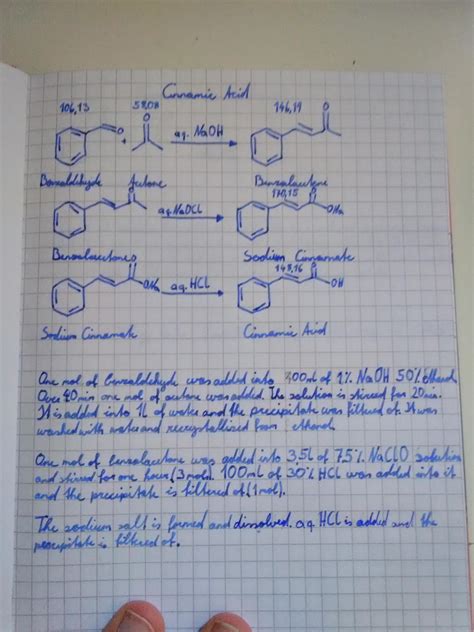 Cinnamic Acid
106,13 58,08 146,19
O O O
+ aq. NaOH
Benzaldehyde Acetone Benzalacetone
O 170,15 O
aq. NaOCl ONa
Benzalacetone Sodium Cinnamate
O 148,16 O
ONa aq. HCl OH
Sodium Cinnamate Cinnamic Acid
One mol of benzaldehyde was added into 300ml of 1% NaOH 50% ethanol
Over 40 min one mol of acetone was added. The solution is stirred for 20min.
It is added into 1L of water and the precipitate was filtered of. It was
washed with water and recrystallized from ethanol.
One mol of benzalacetone was added into 3,5l of 7,5% NaClO solution
and stirred for one hour (3mols). 100ml of 30% HCl was added into it
and the precipitate is filtered of (1mol).
The sodium salt is formed and dissolved. aq HCl is added and the
precipitate is filtered of.